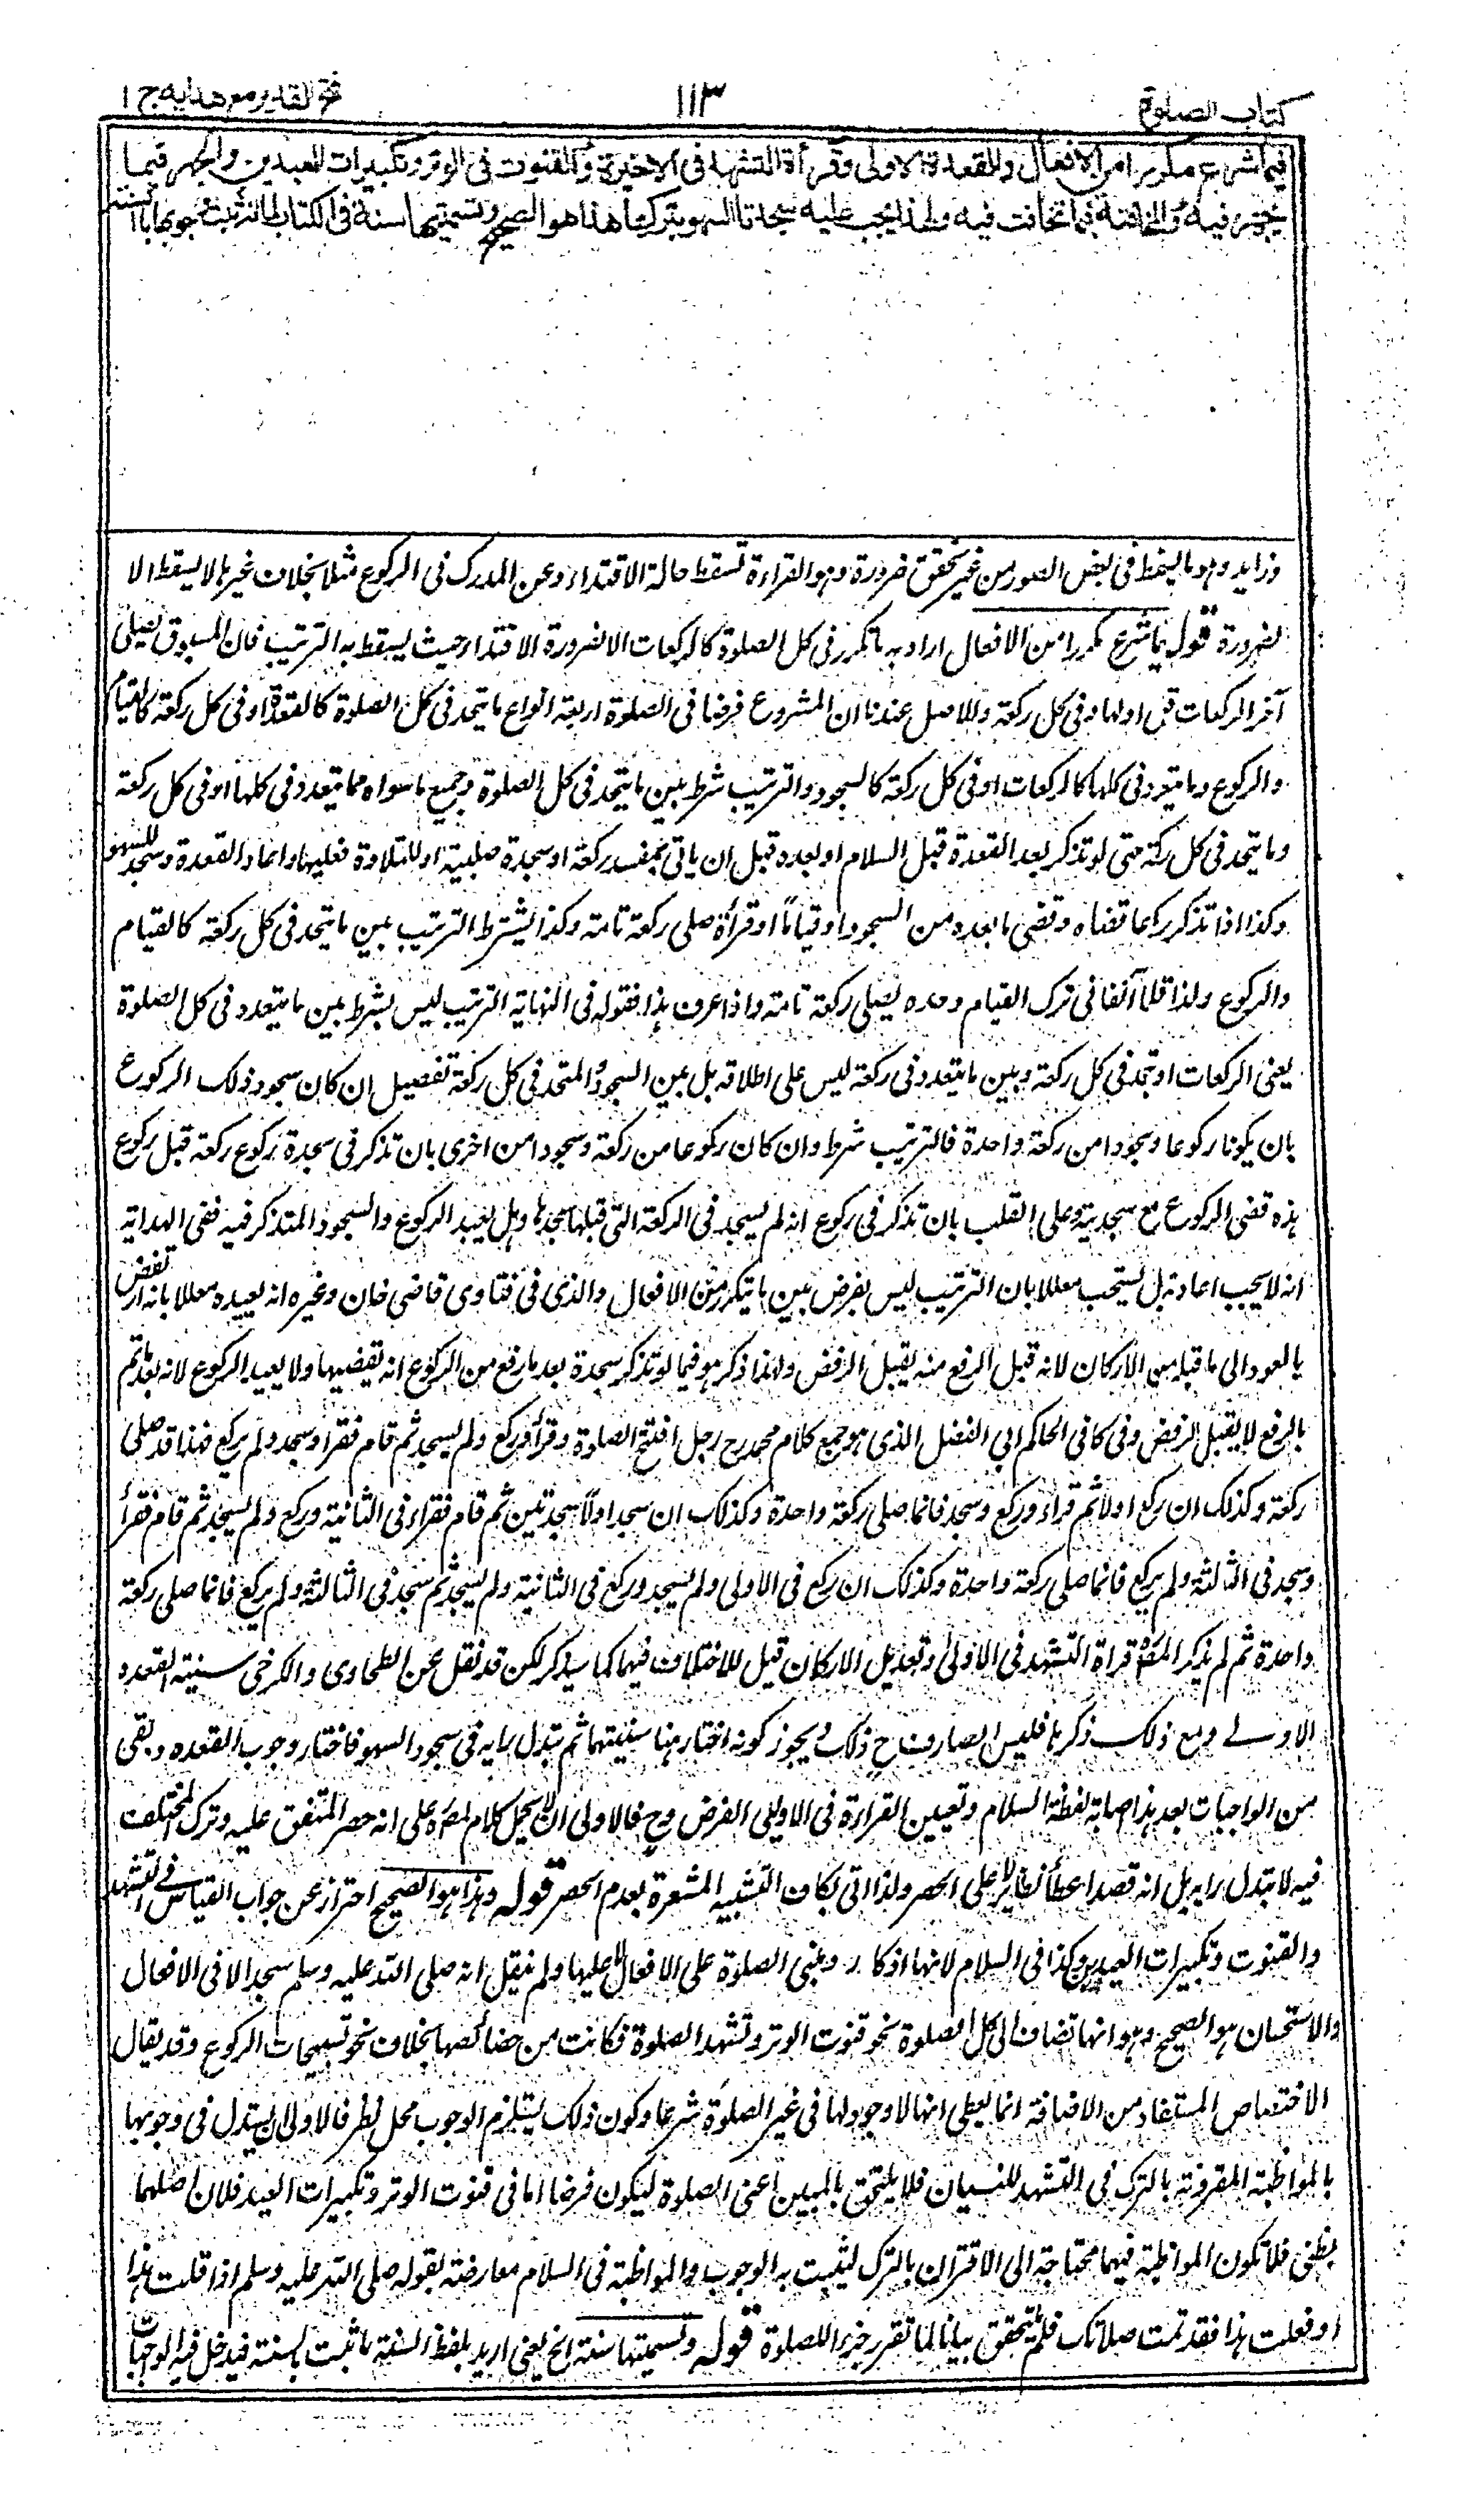 كتاب الصلوة
١١٣
فتح القدير مع هدايه ج ١
فيما شرع مكررا من الافعال والقعدة الاولى وقرأة التشهد فى الاخيرة والقنوت فى الوتر وتكبيرات العيدين والجهر فيما
يجهر فيه والمخافتة فيما يخافت فيه ولهذا يجب عليه سجدتا السهو بتركها هذا هو الصحيح وتسميتها سنة فى الكتاب لما انه ثبت وجوبها بالسنة
وزايد وهو ما يسقط فى بعض الصور من غير تحقق ضرورة وهو القراءة تسقط حالة الاقتداء وعن المدرك فى الركوع مثلا بخلاف غيرها لا يسقط الا
لضرورة قوله فيما شرع مكررا من الافعال اراد به ما تكرر فى كل الصلوة كالركعات الا لضرورة الاقتداء حيث يسقط به الترتيب فان المسبوق يصلى
آخر الركعات قبل اولها وفى كل ركعة والاصل عندنا ان المشروع فرضا فى الصلوة اربعة انواع ما يتحد فى كل الصلوة كالقعدة او فى كل ركعة كالقيام
والركوع وما يتعدد فى كلها كالركعات او فى كل ركعة كالسجود والترتيب شرط بين ما يتحد فى كل الصلوة وجميع ما سواه مما يتعدد فى كلها او فى كل ركعة
وما يتحد فى كل ركعة حتى لو تذكر بعد القعدة قبل السلام او بعده قبل ان ياتى بمفسد ركعة او سجدة صلبية او للتلاوة فعليها واعاد القعدة وسجد للسهو
وكذا اذا تذكر ركوعا قضاه وقضى ما بعده من السجود او قياما او قرأة صلى ركعة تامة وكذا يشترط الترتيب بين ما يتحد فى كل ركعة كالقيام
والركوع ولذا قلنا آنفا فى ترك القيام وحده يصلى ركعة تامة واذا عرف هذا فقوله فى النهاية الترتيب ليس بشرط بين ما يتعدد فى كل الصلوة
يعنى الركعات او يتحد فى كل ركعة وبين ما يتعدد فى ركعة ليس على اطلاقه بل بين السجود والمتحد فى كل ركعة تفصيل ان كان سجود ذلك الركوع
بان يكونا ركوعا وسجودا من ركعة واحدة فالترتيب شرط وان كان ركوعا من ركعة وسجودا من اخرى بان تذكر فى سجدة ركوع ركعة قبل ركوع
هذه قضى الركوع مع سجدتيه وعلى القلب بان تذكر فى ركوع انه لم يسجد فى الركعة التى قبلها سجدها وهل يعيد الركوع والسجود المتذكر فيه ففى الهداية
انه لا يجب اعادته بل تستحب معللا بان الترتيب ليس بفرض بين ما يتكرر من الافعال والذى فى فتاوى قاضى خان وغيره انه يعيده معللا بانه ارتفض
بالعود الى ما قبله من الاركان لانه قبل الرفع منه يقبل الرفض ولهذا ذكر هو فيما لو تذكر سجدة بعد ما رفع من الركوع انه يقضيها ولا يعيد الركوع لانه بعد ما تم
بالرفع لا يقبل الرفض وفى كافى الحاكم ابى الفضل الذى هو جمع كلام محمد رح رجل افتتح الصلوة وقرأ وركع ولم يسجد ثم قام فقرأ وسجد ولم يركع فهذا قد صلى
ركعة وكذلك ان ركع اولا ثم قراء وركع وسجد فانما صلى ركعة واحدة وكذلك ان سجد اولا سجدتين ثم قام فقراء فى الثانية وركع ولم يسجد ثم قام فقرأ
وسجد فى الثالثة ولم يركع فانما صلى ركعة واحدة وكذلك ان ركع فى الاولى ولم يسجد وركع فى الثانية ولم يسجد ثم سجد فى الثالثة ولم يركع فانما صلى ركعة
واحدة ثم لم يذكر المصنف قراة التشهد فى الاولى وتعديل الاركان قيل للاختلاف فيهما كما سيذكر لكن قد نقل عن الطحاوى والكرخى سنية القعده
الاولے ومع ذلك ذكرها فليس الصارف ح ذلك ويجوز كونه اختار هنا سنيتهما ثم تبدل رايه فى سجود السهو فاختار وجوب القعده وبقى
من الواجبات بعد هذا اصابة لفظة السلام وتعيين القراءة فى الاوليى الفرض وح فالاولى ان لا يحمل كلام المصنف على انه حصر المتفق عليه وترك المختلف
فيه لا تبدل رايه بل انه قصدا عطأ نظائر لا على الحصر ولذا اتى بكاف التشبيه المشعرة بعدم الحصر قوله وهذا هو الصحيح احتراز عن جواب القياس فے التشهد
والقنوت وتكبيرات العيدين وكذا فى السلام لانها اذكار ومبنى الصلوة على الافعال لا عليها ولم ينقل انه صلى الله عليه وسلم سجد الا فى الافعال
والاستحسان هو الصحيح وهو انها تضاف الى كل الصلوة نحو قنوت الوتر وتشهد الصلوة فكانت من خصائصها بخلاف نحو تسبيحات الركوع وقد يقال
الاختصاص المستفاد من الاضافة انما يعطى انها لا وجود لها فى غير الصلوة شرعا وكون ذلك يستلزم الوجوب محل نظر فالاولى ان يستدل فى وجوبها
بالمواظبة المقرونة بالترك فى التشهد للنسيان فلا يلتحق بالمبين اعنى الصلوة ليكون فرضا اما فى قنوت الوتر وتكبيرات العيد فلان اصلهما
بظنى فلا تكون المواظبة فيهما محتاجة الى الاقتران بالترك ليثبت به الوجوب والمواظبة فى السلام معارضة بقوله صلى الله عليه وسلم اذا قلت هذا
او فعلت هذا فقد تمت صلاتك فلم يتحقق بيانا لما تقرر جزءا للصلوة قوله وتسميتها سنة الخ يعنى اريد بلفظ السنة ما ثبت بالسنة فيدخل فيه الواجبات